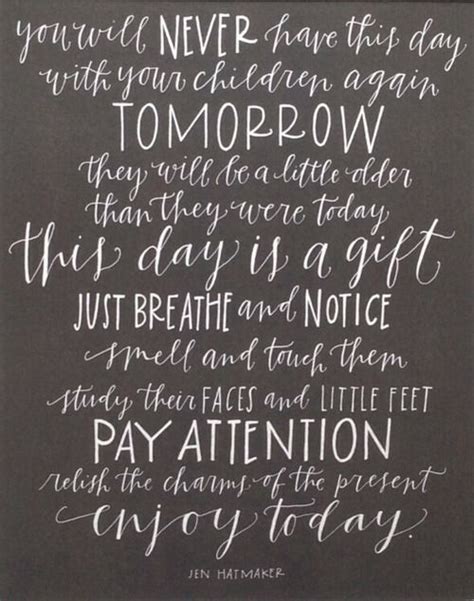 you will NEVER have this day
with your children again
TOMORROW
they will be a little older
than they were today
this day is a gift
JUST BREATHE and NOTICE
smell and touch them
study their FACES and LITTLE FEET
PAY ATTENTION
relish the charms of the present
enjoy today.
JEN HATMAKER